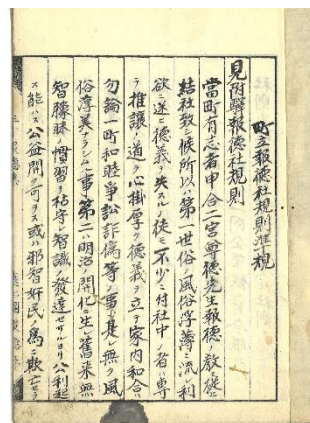 町立報徳社規則準視
見附驛報徳社規則
當町有志者申合二宮尊徳先生報徳ノ教ニ従ヒ
結社致シ候所以ハ第一世俗ノ風俗浮薄ニ流レ利
欲ニ迷ヒ徳義ヲ失スルノ徒モ不少ニ付社中ノ者ハ専
ラ推譲ノ道ヲ心掛厚ク徳義ヲ立テ家内和合ハ
勿論一町和睦爭訟詐偽等ノ事ハ是レ無ク風
俗淳美ナラシムル事第二ハ明治ノ開化ニ生レ舊来無
智朦昧ノ慣習ヲ粘守シ智識ノ發達セサルヨリ公利起
ス能ハス公益開ク可ラス或ハ邪智奸民ノ為ニ欺亡セラ